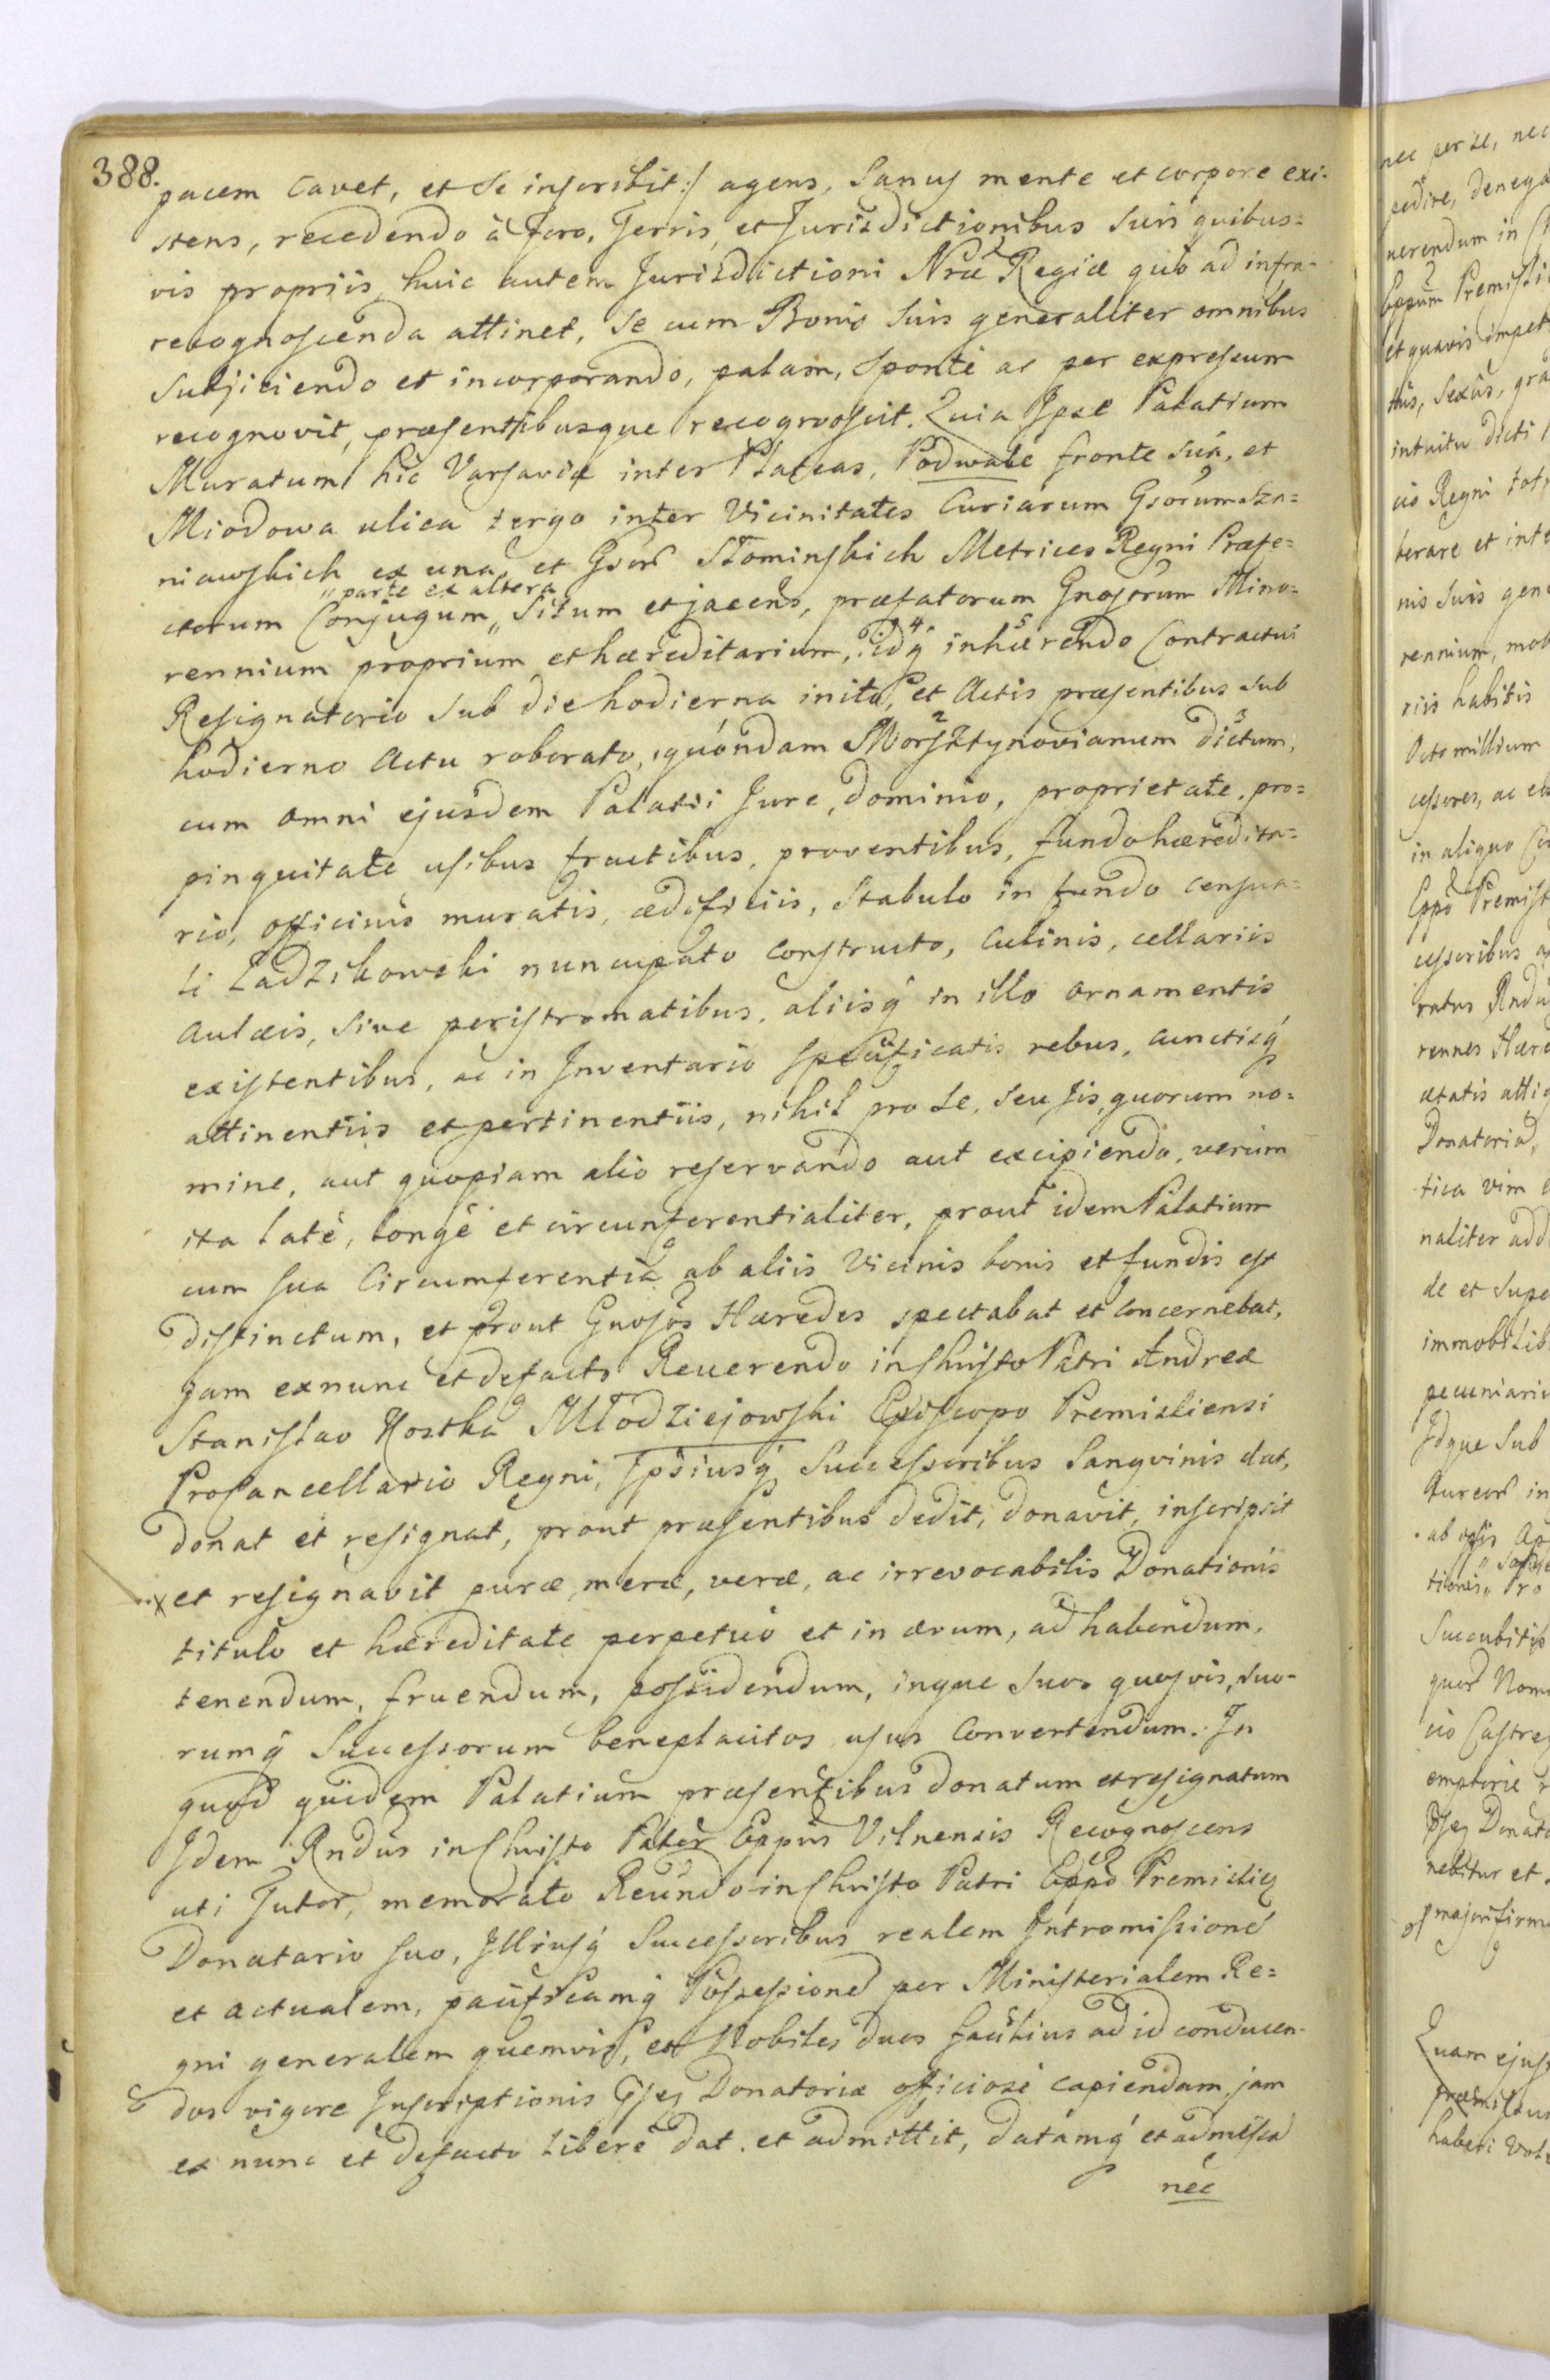 388.
pacem cavet, et se inscribit:/ agens, sanus mente et corpore exi-
stens, recedendo à foro, Terris, et Jurisdictionibus suis quibus=
vis propriis, huic autem Jurisdictioni Nrae Regiae quò ad infra-
recognoscenda attinet, se cum Bonis suis generaliter omnibus
subjiciendo et incorporando, palam, sponte ac per expressum
recognovit, praesentibusque recognoscit. Quia Ipse Palatium
Muratum hic Varsaviae inter Plateas, Podwale fronte suâ, et
Miodowa ulica tergo inter Vicinitates Curiarum Gsorum Sza=
niawskich ex una et Gsor Słominskich Metrices Regni Praefe=
"parte ex altera
ctorum Conjugum " situm et jacens, praefatorum Gnosorum Mino=
rennium proprium et haereditarium, idq 4 inhaerendo 5 Contractui
Resignatorio sub die hodierna inito, et Actis praesentibus sub
hodierno Actu roborato, 1 quondam 2 Morsztynovianum 3 dictum,
cum omni ejusdem Palatii Jure, dominio, proprietate, pro=
pinquitate usibus fructibus, proventibus, fundo haeredita=
rio, officinis muratis, aedificiis, stabulo in fundo censua=
li Ladzikowski nuncupato constructo, culinis, cellariis
aulaeis, sive peristromatibus, aliisq in illo ornamentis
existentibus, ac in Inventario specificatis rebus, cunctisq
attinentiis et pertinentiis, nihil pro se, seu iis, quorum no=
mine, aut quopiam alio reservando aut excipiendo, verùm
ita latè, longè et circumferentialiter, prout idem Palatium
cum sua Circumferentia ab aliis Vicinis bonis et fundis est
distinctum, et prout Gnosos Haeredes spectabat et concernebat,
jam exnunc et defacto Reverendo in Christo Patri Andreae
Stanislao Kostka Młodziejowski Episcopo Premisliensi
Procancellario Regni, Ipsiusq Successoribus Sangvinis dat,
donat et resignat, prout praesentibus dedit, donavit, inscripsit
x et resignavit purae, merae, verae, ac irrevocabilis Donationis
titulo et haereditate perpetuò et in aevum, ad habendum,
tenendum, fruendum, possidendum, inque suos quosvis, suo-
rumq Successorum beneplacitos usus convertendum. In
quod quidem Palatium praesentibus donatum et resignatum
Idem Rndus in Christo Pater Eppus Vilnensis Recognoscens
uti Tutor, memorato Reundo in Christo Patri Eppo Premislien
Donatario suo, Illiusq Successoribus realem Intromissione
et actualem, pacificamq Possessione per Ministerialem Re=
gni generalem quemvis, et Nobiles duos facilius ad id conducen-
dos vigore Inscriptionis Psis Donatoriae officiosè capiendam, jam
ex nunc et defacto liberè dat et admittit, datamq et admissa
nec
nec per se, nec
pedire, denega
nerendum in
Eppum Premisli
et quavis impet
tûs, sexûs, gra
intuitu dicti
cio Regni tot
berare et inte
nis suis gene
rennium, mob
riis habitis
Octo millium
cessores, ac eo
in aliquo
Eppo Premisl
cessoribus
ratus Rndu
rennes Haere
aetatis atti
Donatoria,
tica vim
naliter add
de et supe
immobilib
pecuniari
Idque sub
Aureor in
tionis " Pro
Succubitis
quod Nom
cio Castre
emptoriae
Psis Donato
nebitur et
majorifirm
Quam ejus
praemissu
haberi vol